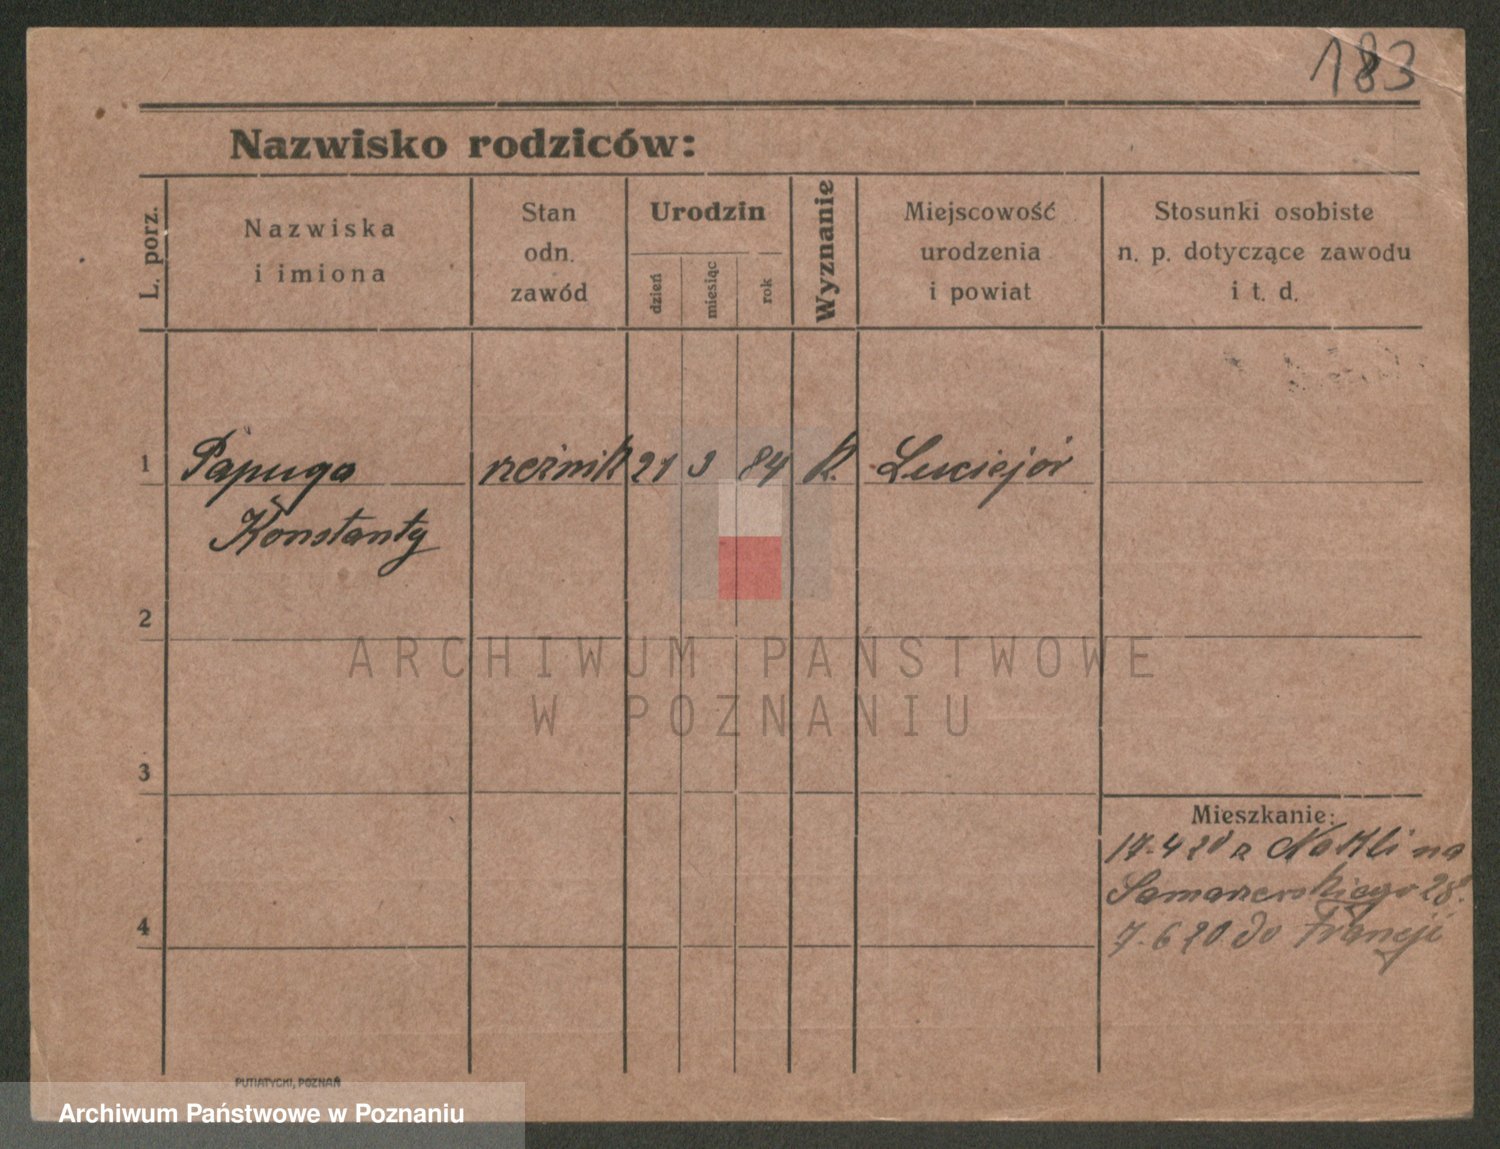 183
Nazwisko rodziców:
L. porz.
Nazwiska
i imiona
Stan
odn.
zawód
Urodzin
dzień
miesiąc
rok
Wyznanie
Miejscowość
urodzenia
i powiat
Stosunki osobiste
n. p. dotyczące zawodu
i t. d.
1 Papuga rzeźnik 21 3 84 K.
Konstanty
2
ARCHIWUM PAŃSTWOWE
W POZNANIU
3
Mieszkanie:
17.4 20 z Nakli na
Samarzewskiego 28.
4
7.6 20 do Francji
PUTIATYCKI, POZNAŃ
Archiwum Państwowe w Poznaniu